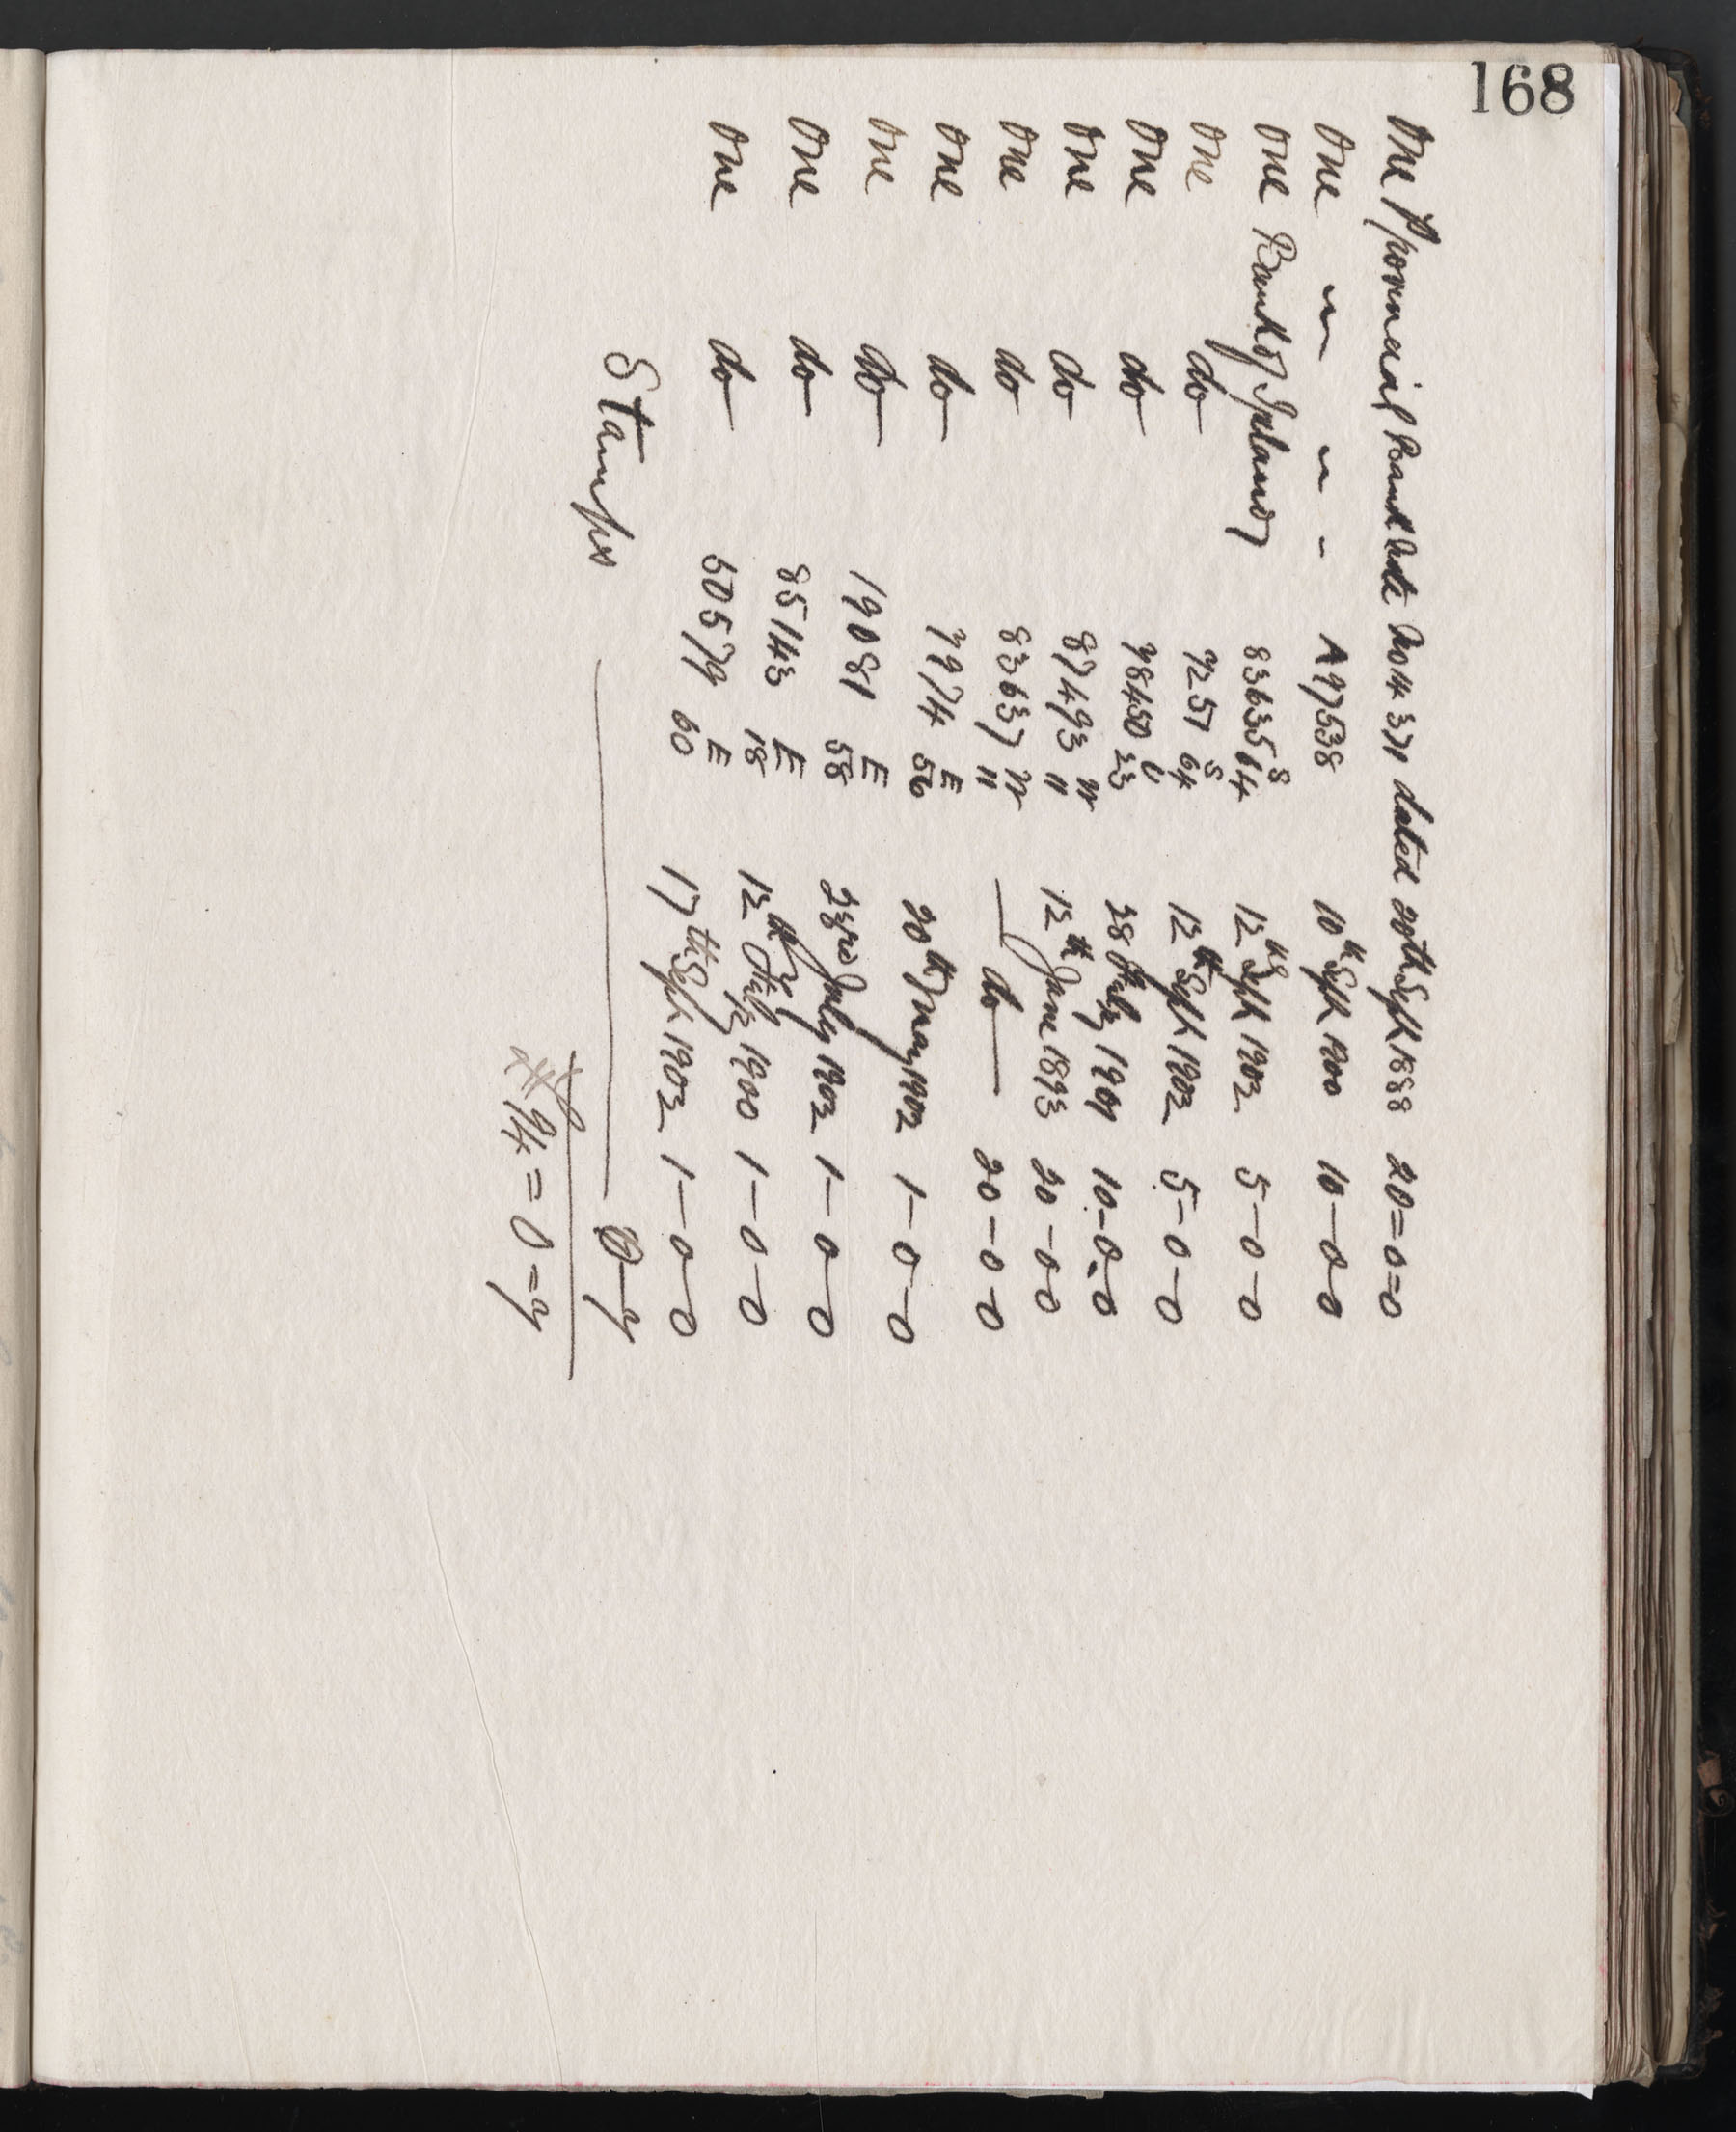 168
One Provincial Bank Note No 14371 dated 20th Sept 1888 20=0=0
One " " " A97538 10th Sept 1900 10-0-0
One Bank of Ireland 83635 S/64 12th Sept 1902 5-0-0
One do 7251 S/64 12th Sept 1902 5-0-0
One do 78450 U/23 28 July 1901 10-0-0
One do 87493 W/11 12th June 1893 20-0-0
One do 83637 W/11 — do — 20-0-0
One do 7974 E/56 20th May 1902 1-0-0
One do 19081 E/58 23rd July 1902 1-0-0
One do 85143 E/18 12th July 1900 1-0-0
One do 50579 E/60 17th Sept 1902 1-0-0
Stamps — 0-7
£94=0=7